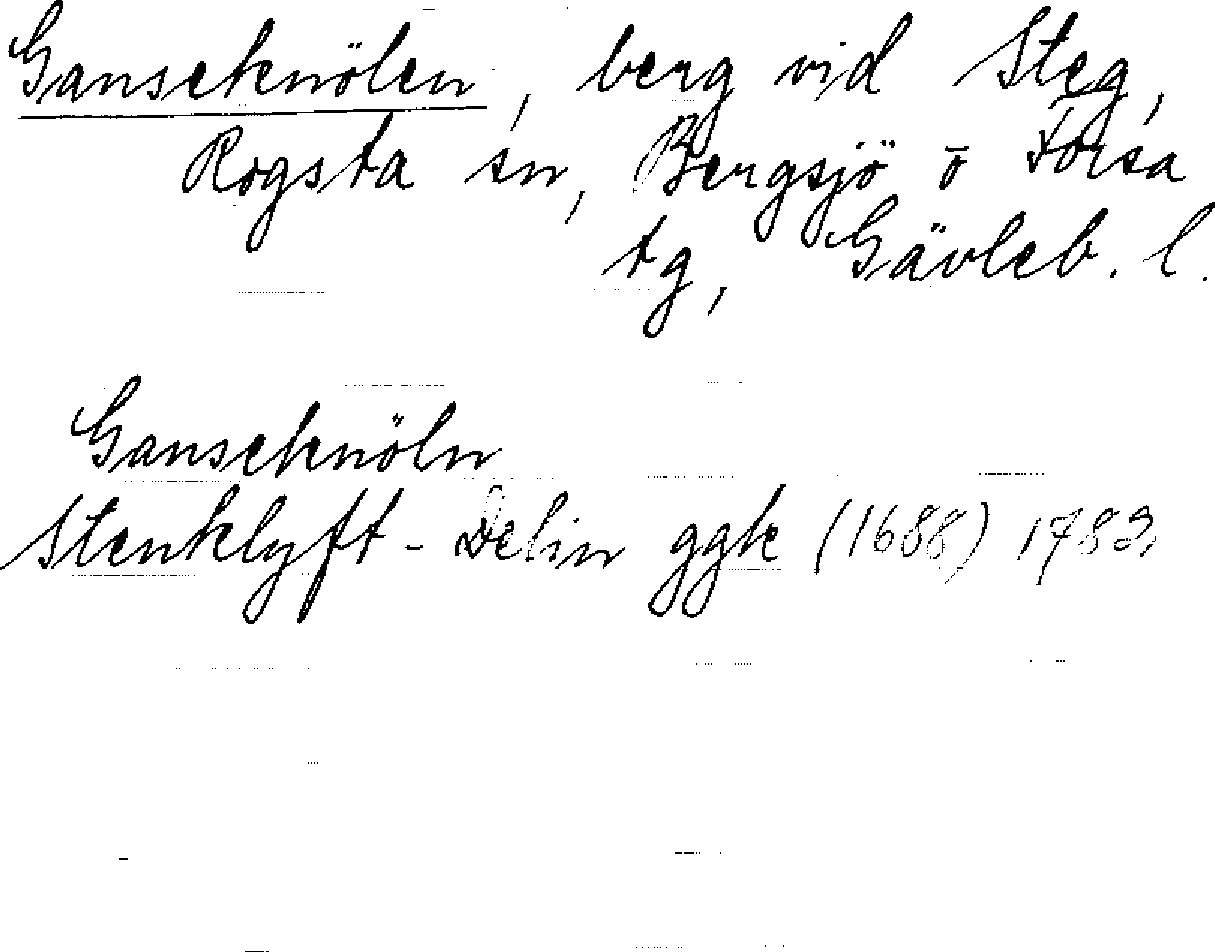 Ganseknölen, berg vid Steg,
Rogsta sn, Bergsjö o Forsa
tg, Gävleb. l.
Ganseknöln
Stenklyft - Delin ggk (1688) 1783